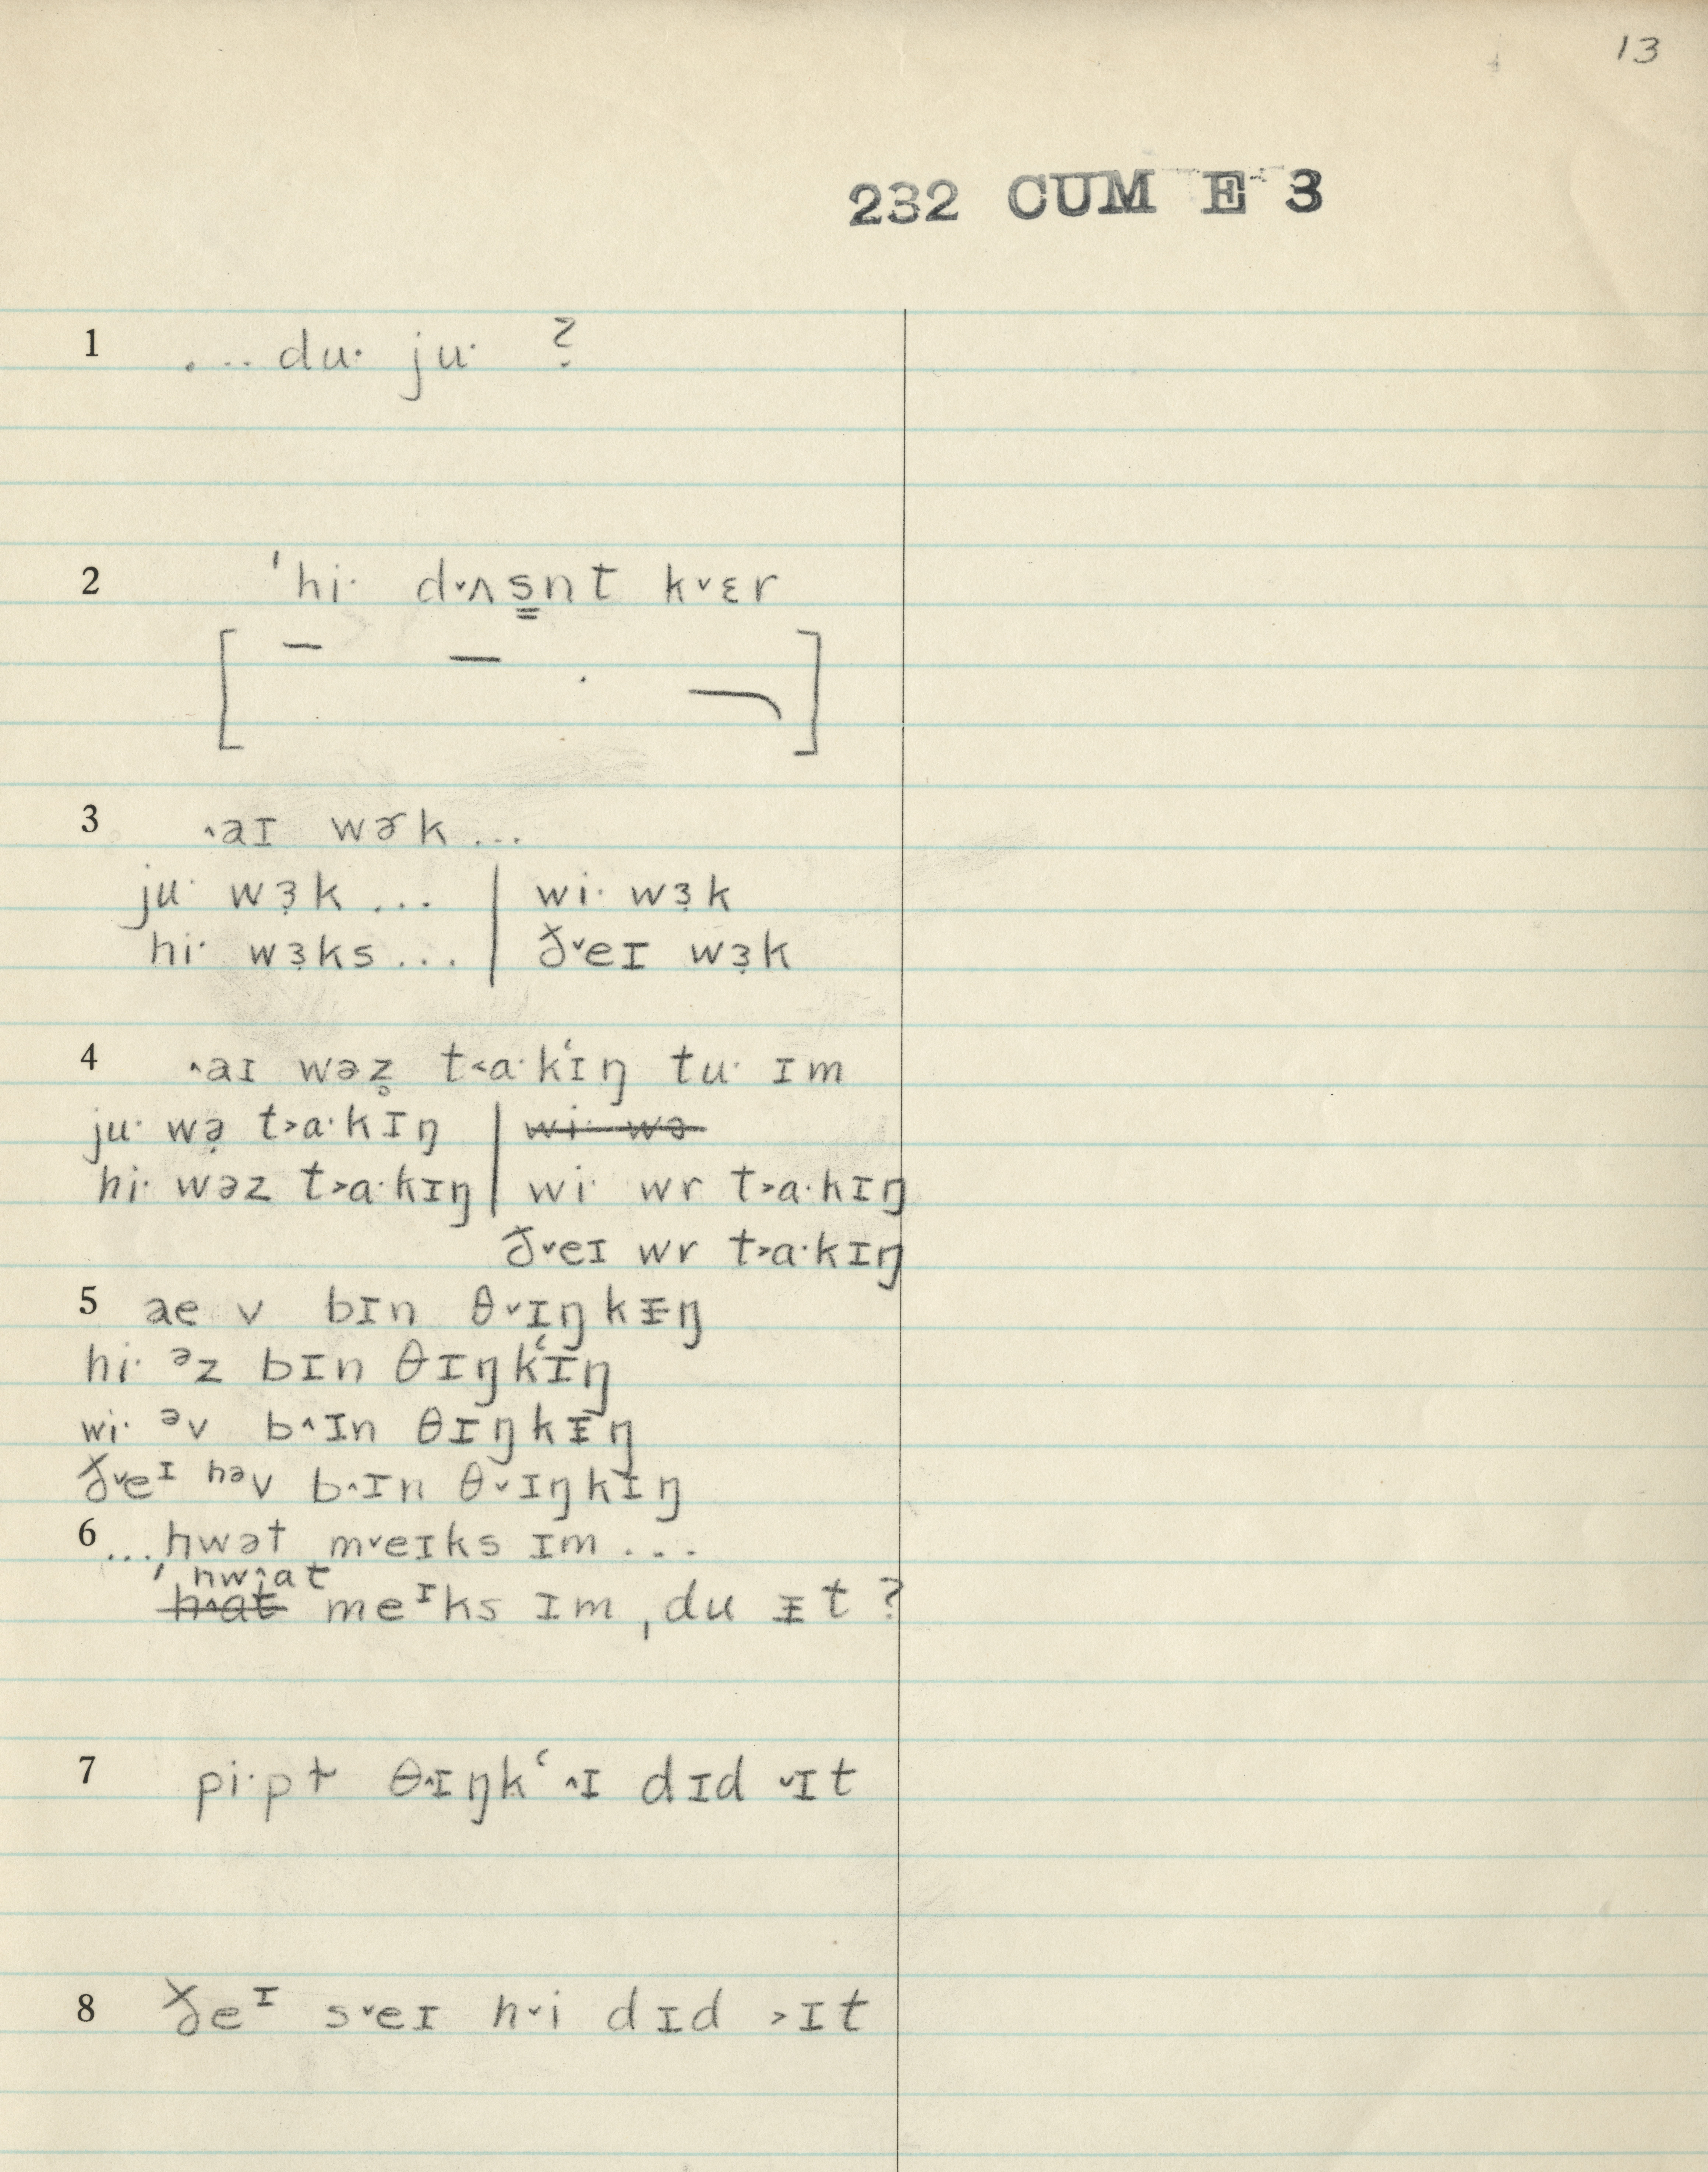 13
232 CUM E 3
1 ... du· ju· ?
2 ˈhi· d˅ʌs̳nt k˅ɛr
3 ˄aɪ wɚk ...
ju· wɜ̣k ... | wi· wɜ̣k
hi· wɜ̣ks ... | ð˅eɪ wɜ̣k
4 ˄aɪ wəz̥ t˂a·kʻɪŋ tu· ɪm
ju· wə̣ t˃a·kɪŋ | wi· wə
hi· wəz t˃a·kɪŋ | wi· wr t˃a·kɪŋ
ð˅eɪ wr t˃a·kɪŋ
5 ae v bɪn θ˅ɪŋkᵻŋ
hi· ᵊz bɪn θɪŋkʻɪŋ
wi· ᵊv b˄ɪn θɪŋkᵻŋ
ð˅eᶦ ʰᵊv b˄ɪn θ˅ɪŋkɪŋ
6 ... hwət m˅eɪks ɪm ...
ˈhw˄at
h˄at meᶦks ɪm, du ᵻt ?
7 pi·pɫ θ˄ɪŋkʻ ˄ɪ dɪd ˅ɪt
8 ðeᶦ s˅eɪ h˅i dɪd ˃ɪt